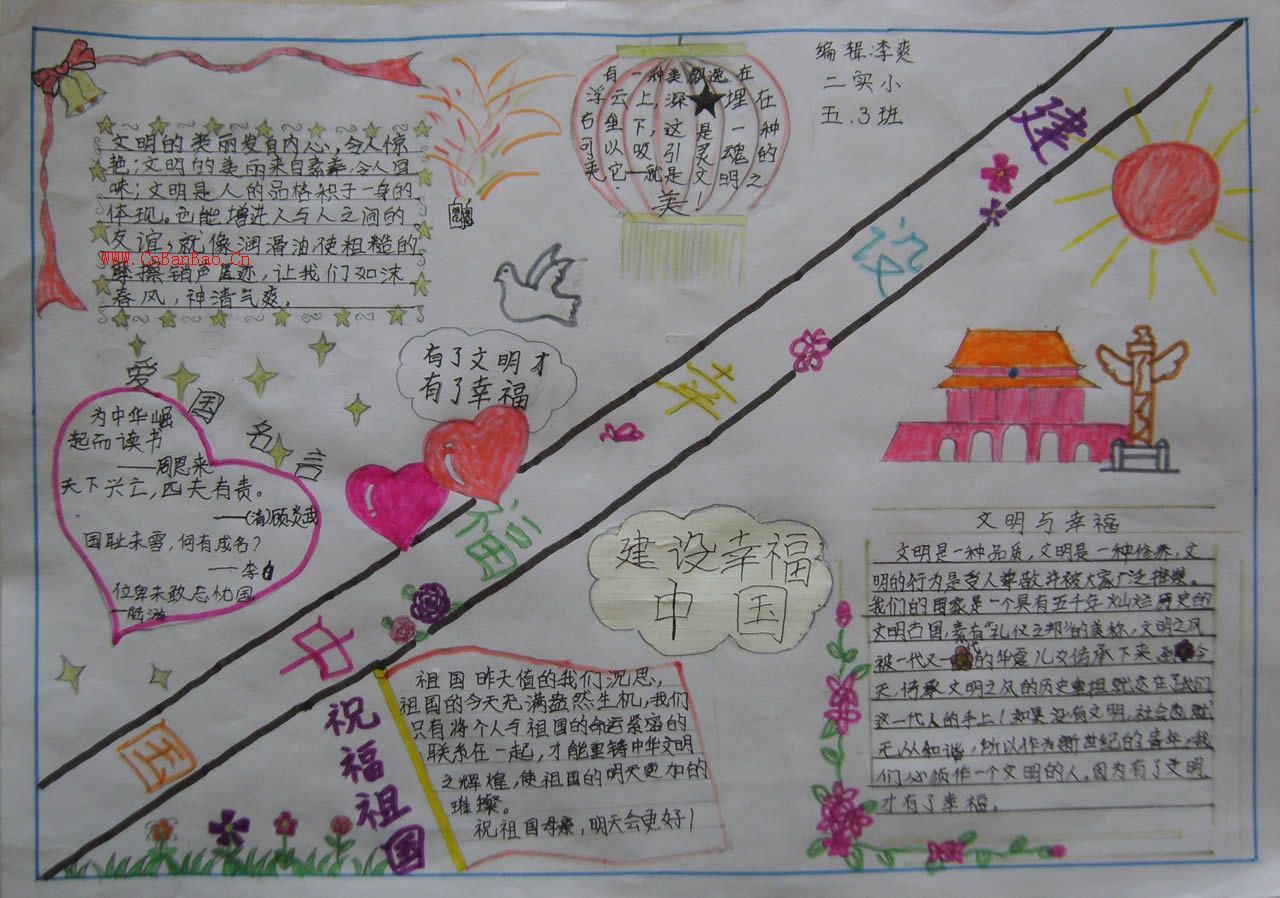 编辑:李爽
二实小
五.3班
文明的美丽发自内心,令人惊
艳;文明的美丽来自素养,令人回
味;文明是人的品格积于一身的
体现。也能增进人与人之间的
友谊,就像润滑油使粗糙的
摩擦销声匿迹,让我们如沐
春风,神清气爽。
www.CnBanBao.Cn
有一种美飘逸在
浮云上,深埋在
右坐下,这是一种
可以吸引灵魂的
美它——就是文明之
美!
建设幸福中国
有了文明才
有了幸福
爱国名言
为中华崛
起而读书
——周恩来
天下兴亡,匹夫有责。
——(清)顾炎武
国耻未雪,何有成名?
——李白
位卑未敢忘忧国
—陆游
建设幸福
中国
文明与幸福
文明是一种品质,文明是一种修养,文
明的行为是受人尊敬并被大家广泛推崇。
我们的国家是一个具有五千年灿烂历史的
文明古国,素有“礼仪之邦”的美称,文明之风
被一代又一代的华夏儿女传承下来,到今
天,传承文明之风的历史重担就落在了我们
这一代人的手上!如果没有文明,社会也就
无从和谐,所以作为新世纪的青年,我
们必须作一个文明的人。因为有了文明,
才有了幸福。
祝福祖国
祖国昨天值的我们沉思,
祖国的今天充满盎然生机,我们
只有将个人与祖国的命运紧密的
联系在一起,才能重铸中华文明
之辉煌,使祖国的明天更加的
璀璨。
祝祖国母亲,明天会更好!